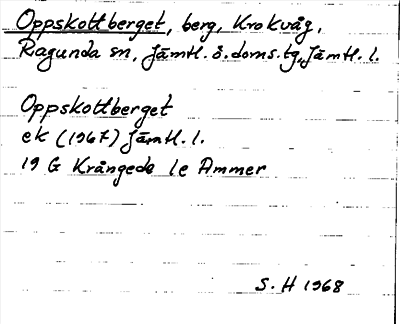 Oppskottberget, berg, Krokvåg,
Ragunda sn, Jämtl. ö. doms.tg, Jämtl. l.
Oppskottberget
ek (1967) Jämtl. l.
19 G Krångede 1e Ammer
S. H 1968